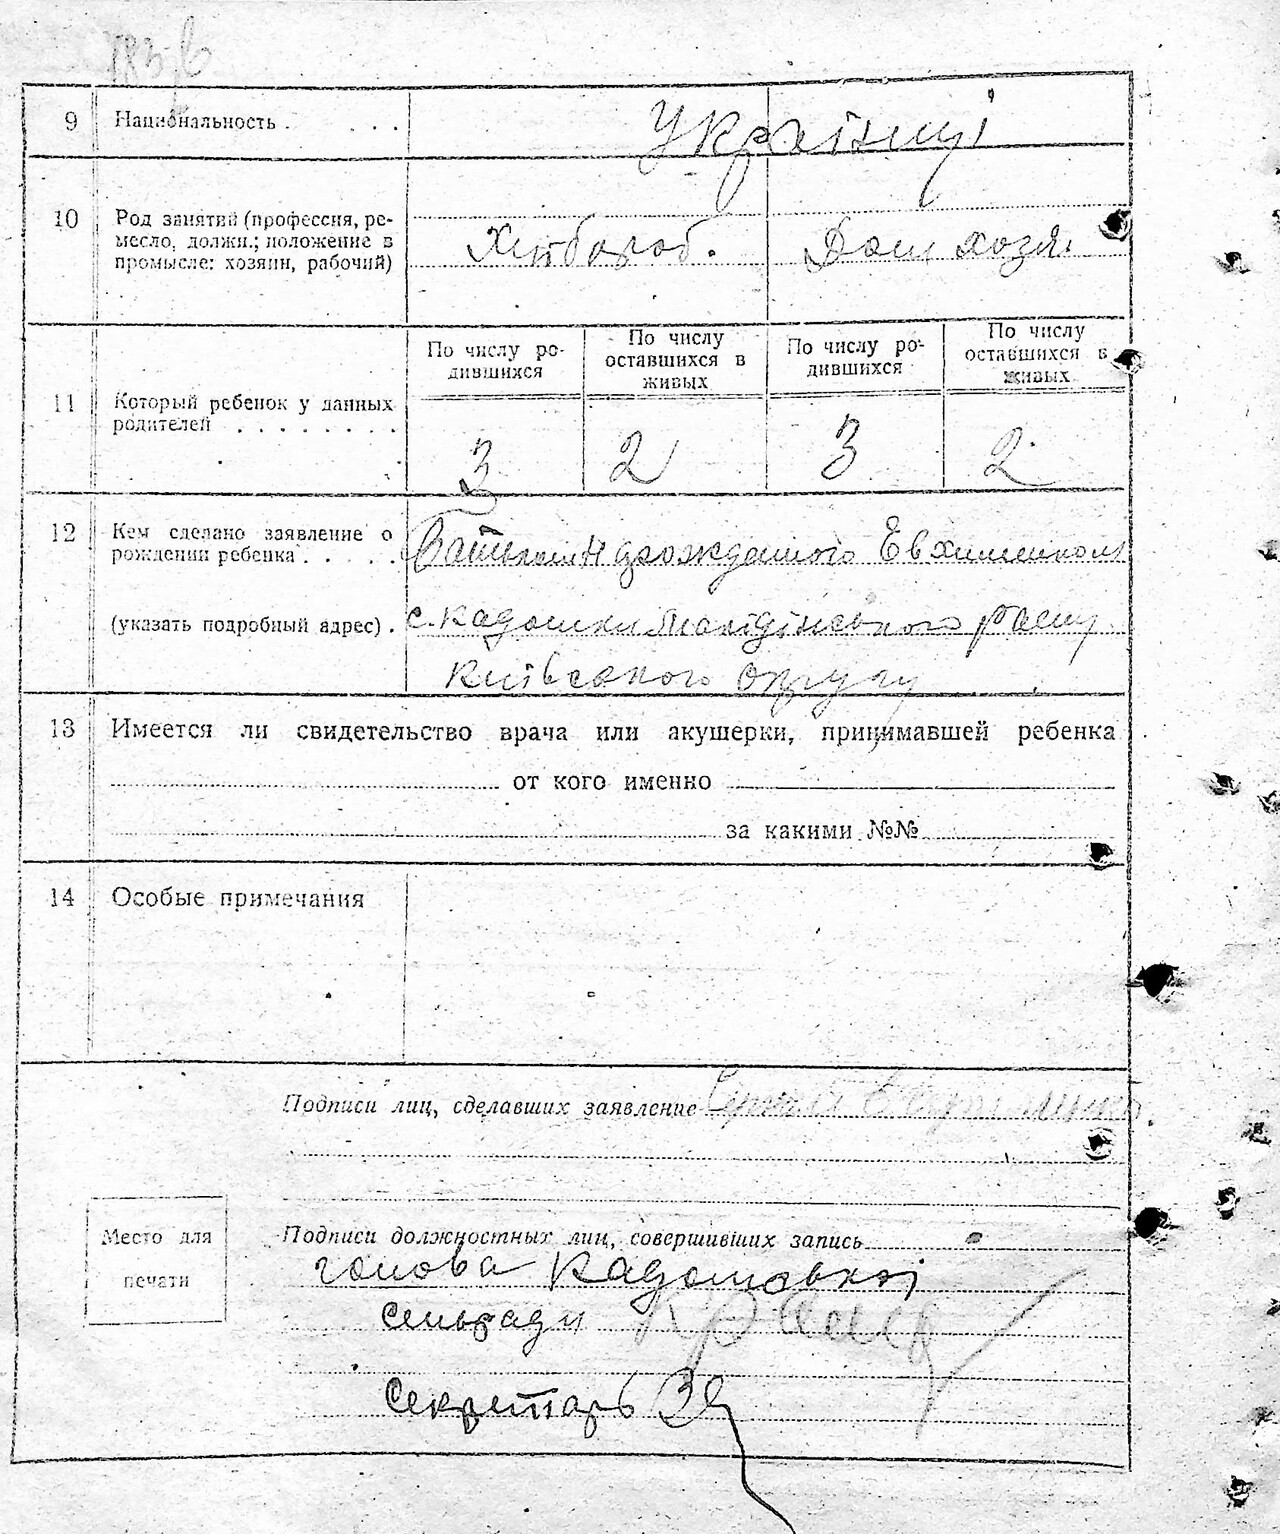 9 Национальность . . . . Українці
10 Род занятий (профессия, ре-
месло, должн.; положение в
промысле: хозяин, рабочий)
Хлібороб. Дом хозя.
11 Который ребенок у данных
родителей . . . . . . . .
По числу ро-
дившихся
По числу
оставшихся в
живых
По числу ро-
дившихся
По числу
оставшихся в
живых
3 2 3 2
12 Кем сделано заявление о
рождении ребенка . . . . .
(указать подробный адрес) .
Батьком Евхименком
с. Кадомки
Київського округу
13 Имеется ли свидетельство врача или акушерки, принимавшей ребенка
от кого именно
за какими №№
14 Особые примечания
Подписи лиц, сделавших заявление
Место для
печати
Подписи должностных лиц, совершивших запись
голова Кадомської
сельради
Секретарь